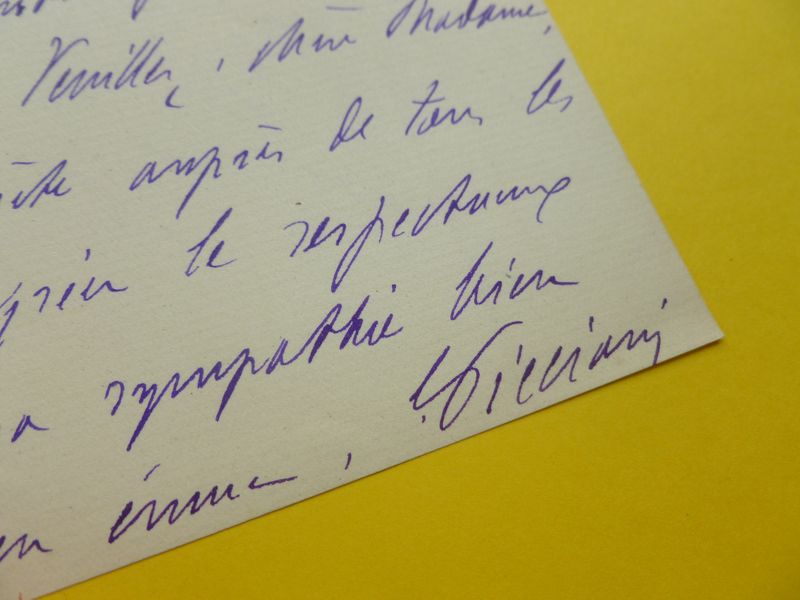 Veuillez, chère Madame,
auprès de tous les
agréer le respectueux
sympathie bien
émue.